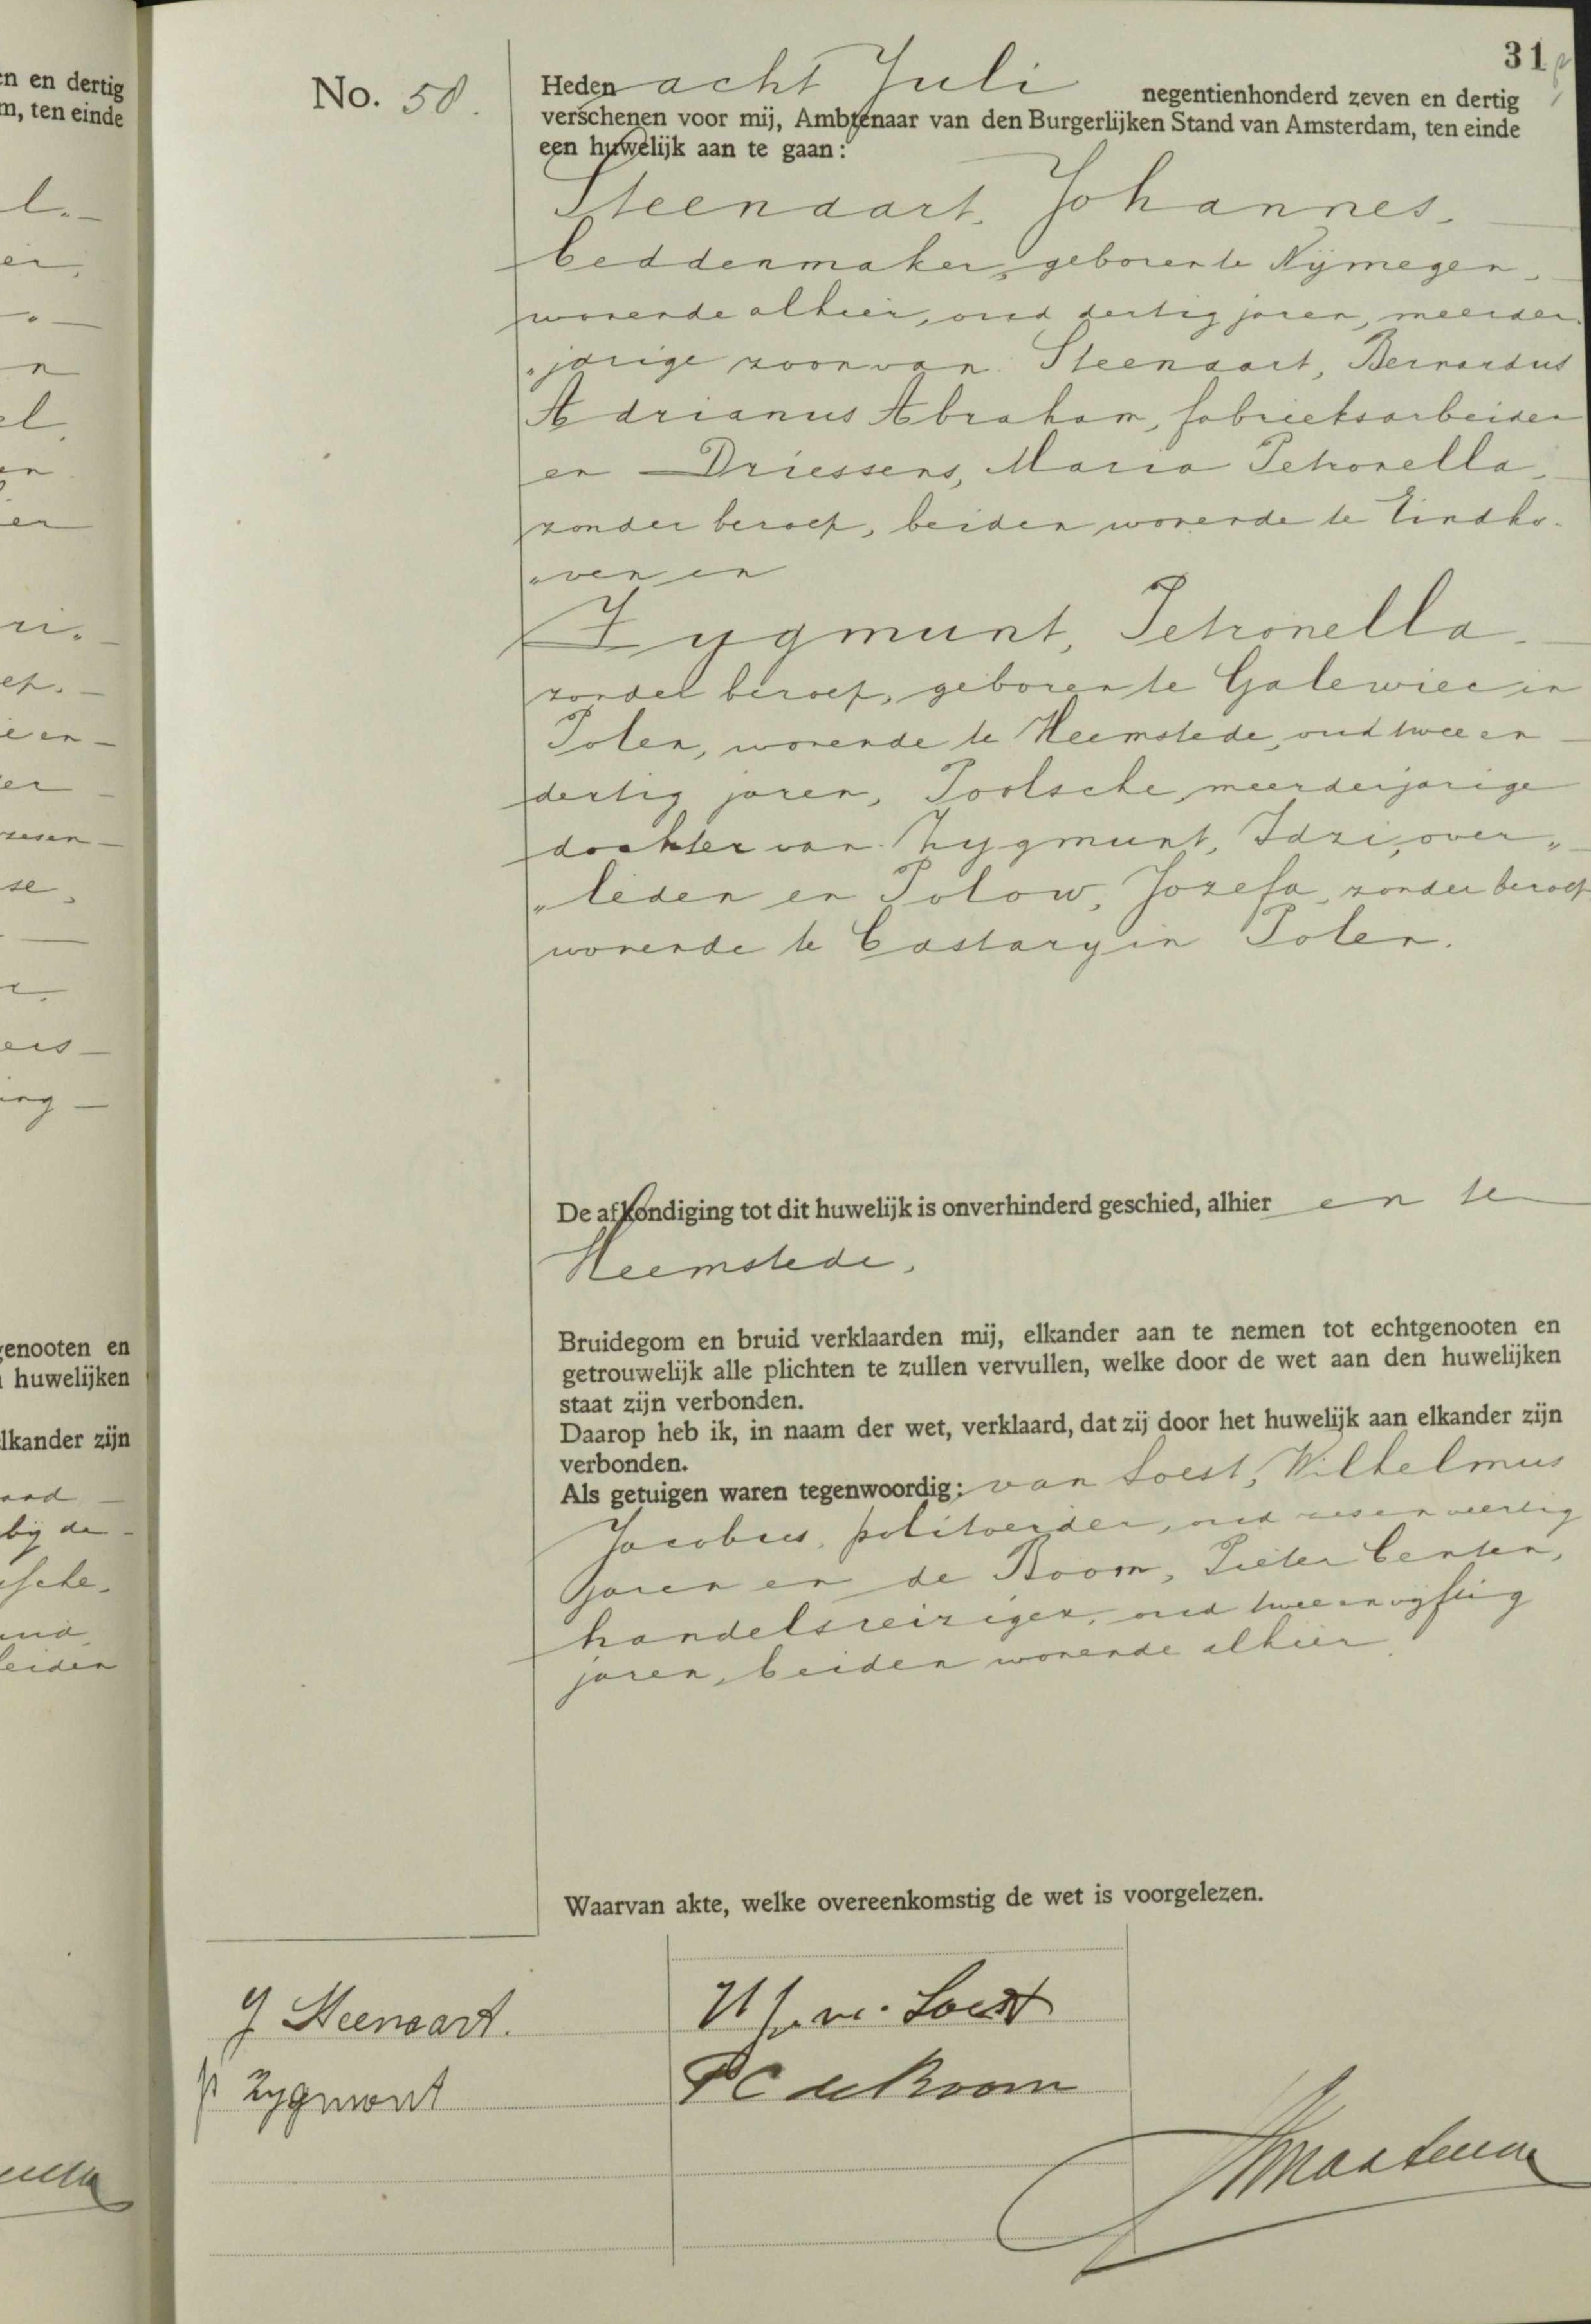 n en dertig
m, ten einde
genooten en
huwelijken
elkander zijn
bij de
31
No. 58.
Heden acht Juli negentienhonderd zeven en dertig
verschenen voor mij, Ambtenaar van den Burgerlijken Stand van Amsterdam, ten einde
een huwelijk aan te gaan:
Steenaart, Johannes,
beddenmaker, geboren te Nijmegen,
wonende alhier, oud dertig jaren, meerder-
"jarige zoon van Steenaart, Bernardus
Adrianus Abraham, fabrieksarbeider
en Driessens, Maria Petronella,
zonder beroep, beiden wonende te Eindho-
"ven en
Zygmunt, Petronella
zonder beroep, geboren te Galewiec in
Polen, wonende te Heemstede, oud twee en
dertig jaren, Poolsche, meerderjarige
dochter van Zygmunt, Idzi, over"
"leden en Polow, Jozefa, zonder beroep
wonende te Castary in Polen.
De afkondiging tot dit huwelijk is onverhinderd geschied, alhier en te
Heemstede.
Bruidegom en bruid verklaarden mij, elkander aan te nemen tot echtgenooten en
getrouwelijk alle plichten te zullen vervullen, welke door de wet aan den huwelijken
staat zijn verbonden.
Daarop heb ik, in naam der wet, verklaard, dat zij door het huwelijk aan elkander zijn
verbonden.
Als getuigen waren tegenwoordig: van Soest, Wilhelmus
Jacobus, politoerder, oud zes en veertig
jaren en de Boom, Pieter Centen,
handelsreiziger, oud twee en vijftig
jaren, beiden wonende alhier.
Waarvan akte, welke overeenkomstig de wet is voorgelezen.
J Steenaart.
p Zygmont
W J. v. Soest
P C de Boom